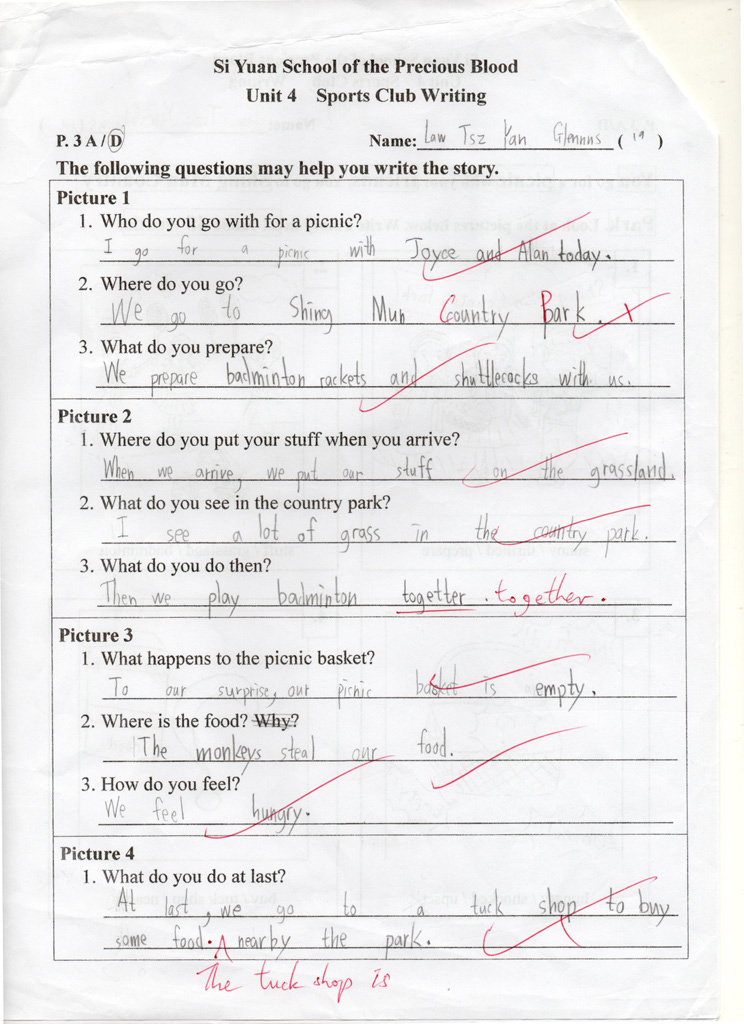 Si Yuan School of the Precious Blood
Unit 4 Sports Club Writing
P. 3 A / D Name: Law Tsz Yan Glennns ( 19 )
The following questions may help you write the story.
Picture 1
1. Who do you go with for a picnic?
I go for a picnic with Joyce and Alan today.
2. Where do you go?
We go to Shing Mun Country Park.
3. What do you prepare?
We prepare badminton rackets and shuttlecocks with us.
Picture 2
1. Where do you put your stuff when you arrive?
When we arrive, we put our stuff on the grassland.
2. What do you see in the country park?
I see a lot of grass in the country park.
3. What do you do then?
Then we play badminton togetter. together.
Picture 3
1. What happens to the picnic basket?
To our surprise, our picnic basket is empty.
2. Where is the food? Why?
The monkeys steal our food.
3. How do you feel?
We feel hungry.
Picture 4
1. What do you do at last?
At last, we go to a tuck shop to buy
some food. nearby the park.
The tuck shop is